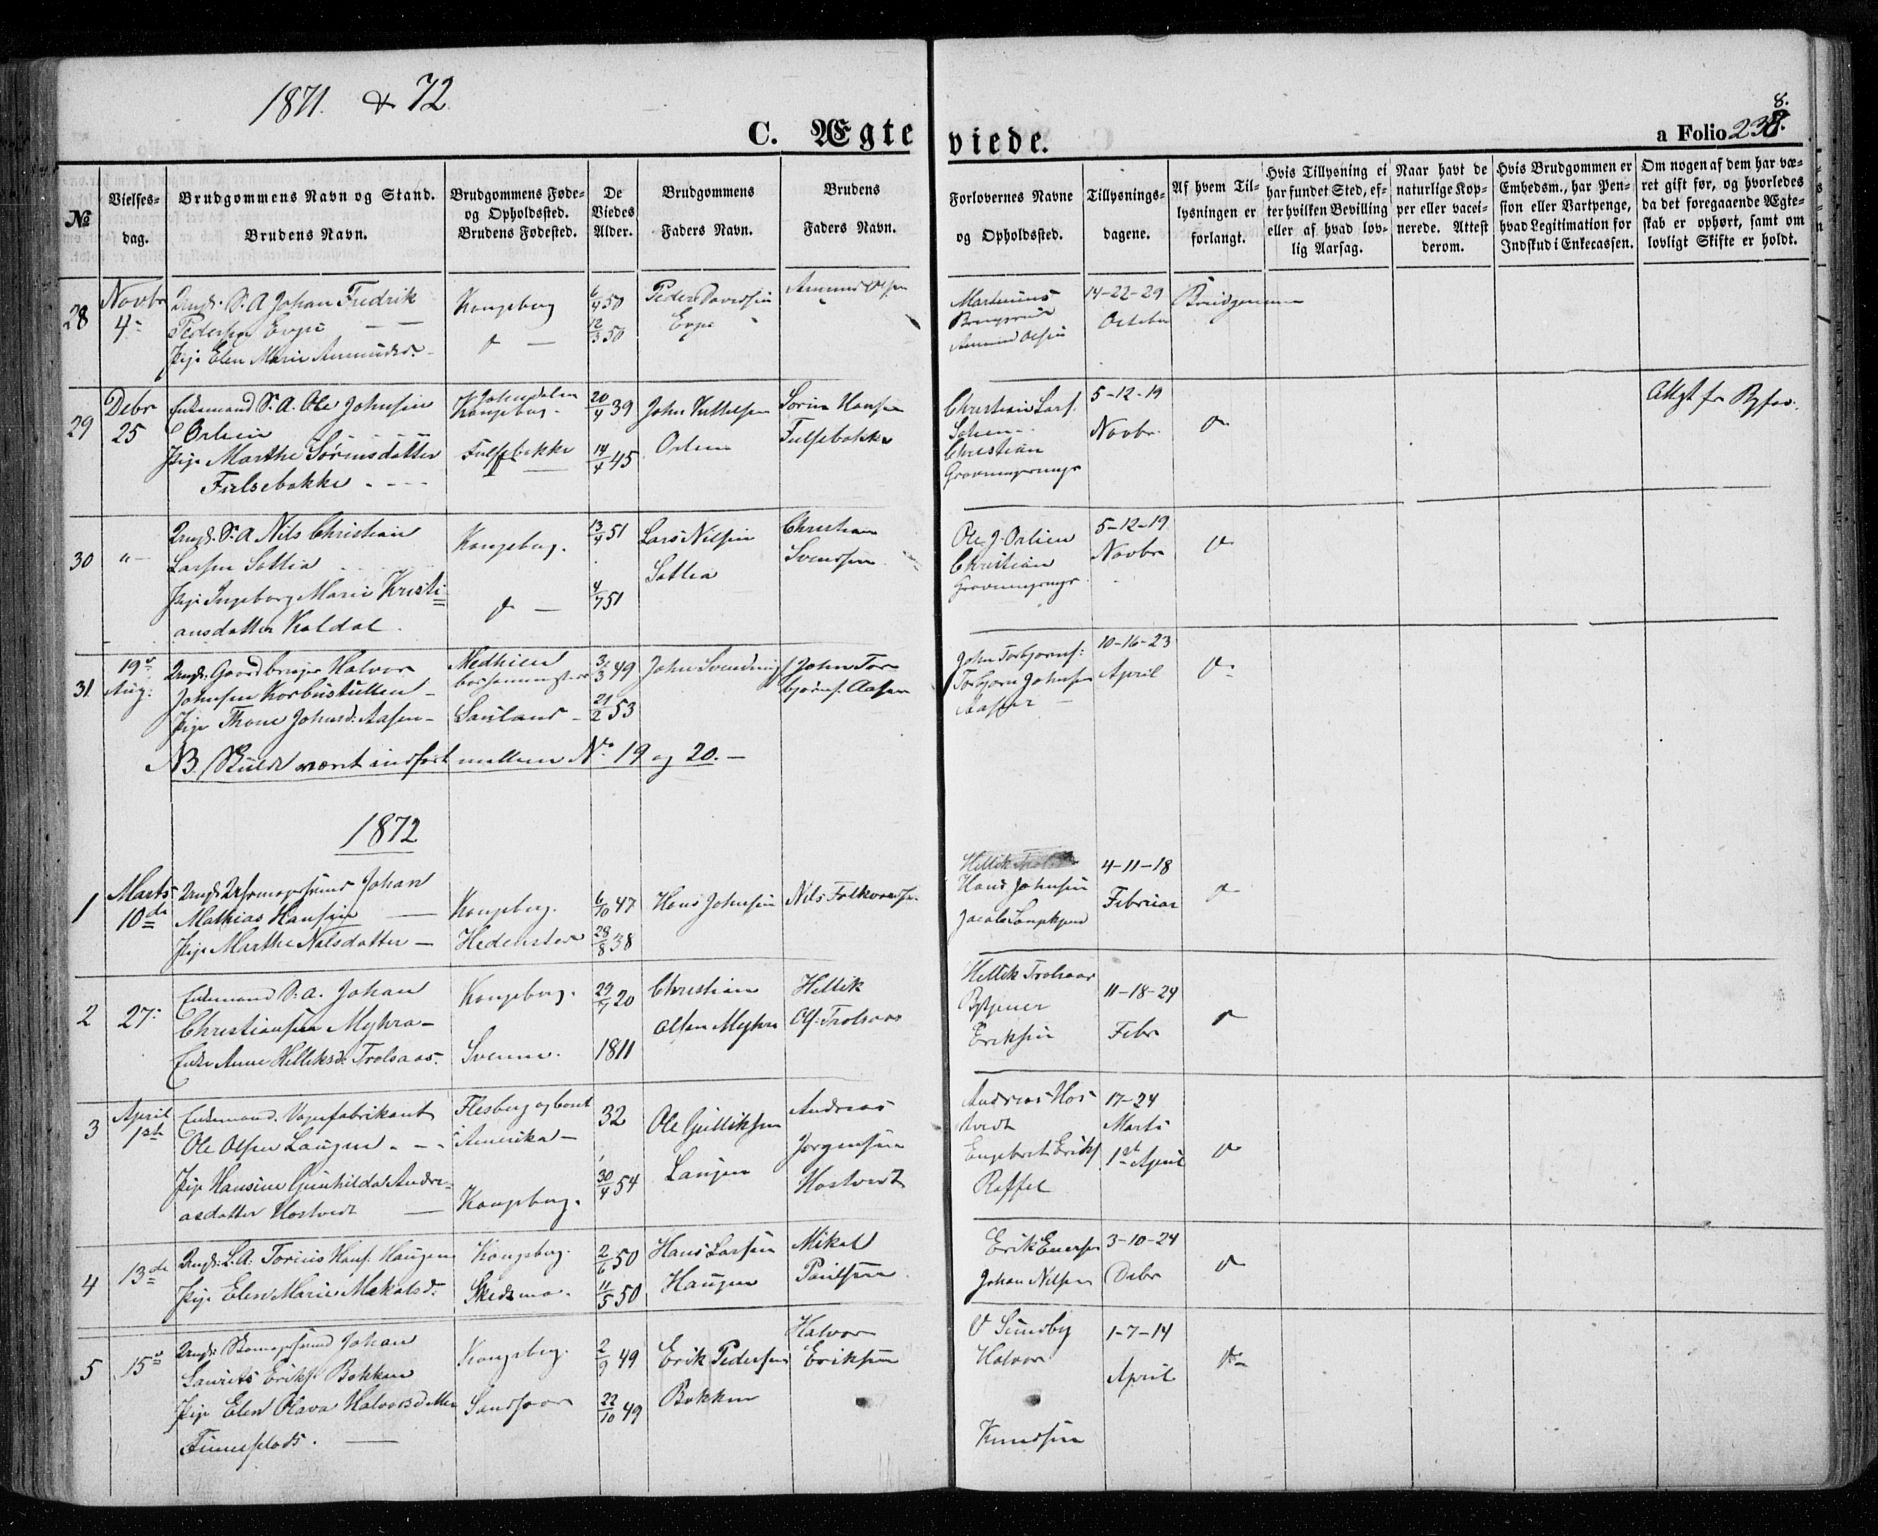 1871. & 72
C. Ægteviede.
8.
a Folio 238.
No
Vielses-dag.
Brudgommens Navn og Stand.
Brudens Navn.
Brudgommens Føde- og Opholdssted.
Brudens Fødested.
De Viedes Alder.
Brudgommens Faders Navn.
Brudens Faders Navn.
Forlovernes Navne og Opholdssted.
Tillysnings-dagene.
Af hvem Til-lysningen er forlangt.
Hvis Tillysning ei har fundet Sted, ef-ter hvilken Bevilling eller af hvad lov-lig Aarsag.
Naar havt de naturlige Kop-per eller vacci-nerede. Attest derom.
Hvis Brudgommen er Embedsm., har Pen-sion eller Vartpenge, hvad Legitimation for Indskud i Enkecassen.
Om nogen af dem har væ-ret gift før, og hvorledes da det foregaaende Ægte-skab er ophørt, samt om lovligt Skifte er holdt.
28
Novbr
4
Ungk. S. A Johan Fredrik
Pedersen Evje
Pige Elen Marie Amundsd.
Kongsberg
6/9 50
12/3 50
Peder Davidsen
Evje
Amund Olsen
Martinius
Amund Olsen
14-22-29
October
Brudgommen
29
Debr
25
Enkemand S. A. Ole Johnsen
Orlien
Pige Marthe Sørensdatter
Fulsebakke
Kongsberg
Fulsebakke
20/4 39
14/4 45
John Kittelsen
Orlien
Søren Hansen
Fulsebakke
Christian Lars.
Christian
5-12-19
Novbr.
Attest fr Byfov.
30
Ungk. S. A Nils Christian
Larsen Sollia
Pige Ingeborg Marie Kristi=
ansdatter Koldal.
Kongsberg.
13/4 51
4/7 51
Lars Nilsen
Sollia
Christian
Svendsen
Ole J. Orlien
Christian
5-12-19
Novbr
31
19de
Aug:
Ungk. Gaardbruger Halvor
Johnsen
Pige Thone Johnsd. Aasen
Sauland
3/3 49
21/2 53
John Svendsen
John Tor
bjørns. Aasen
John Torbjørns:
Torbjørn Johnsen
Aasen
10-16-23
April
NB. Skulde været indført mellem No. 19 og 20.
1872
1
Marts
10de
Johan
Mathias Hansen
Pige Marthe Nilsdatter
Kongsberg.
Hedenstad
6/10 47
28/8 38
Hans Johnsen
Nils Folkvordsen
Hans Johnsen
4-11-18
Februar
2
27:
Enkemand S. a. Johan
Christiansen Myhra
Enke Anne Helliksd. Trolsaas.
Kongsberg.
Svenne.
29/7 20
1811
Christian
Olsen Myhra
Hellik
Ols. Trolsaas
Hellik Trolsaas
Eriksen
11-18-24
Febr
3
April
1st
Enkemand. Vognfabrikant
Ole Olsen Laugen
Pige Hansine Gunhilda Andre=
asdatter Hostvedt
Flesberg og boat
i Amerika
Kongsberg.
32
30/4 54
Ole Gulliksen
Laugen
Andreas
Jørgensen
Hostvedt
Andreas Hos
tvedt
Engebret Eriks
Roffel
17-24
Marts
1st April
4
13de
Ungk. S. A. Torius Hans. Haugen
Pige Elen Marie Mikalsd.
Kongsberg.
Skedsmo.
2/6 50
11/5 50
Hans Larsen
Haugen
Mikal
Paulsen
Erik Enersen
Johan Nilsen
3-10-24
Debr
5
15de
Johan
Laurits Eriks. Bakken
Pige Elen Olava Halvorsdatter
Finneplads.
Kongsberg.
Sandsvær
2/9 49
22/10 49
Erik Pedersen
Bakken
Halvor
Eriksen
O Sundby
Halvor
Knudsen
1-7-14
April